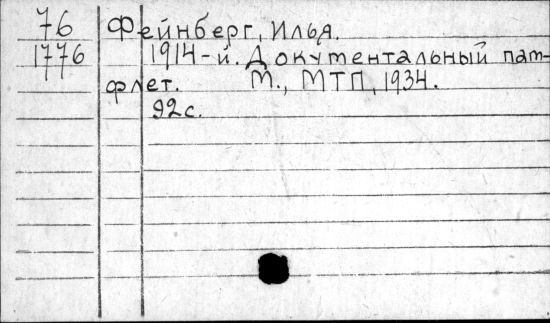 76 Фейнберг, Илья.
1776 1914-й. Документальный пам-
флет. М., МТП, 1934.
92с.